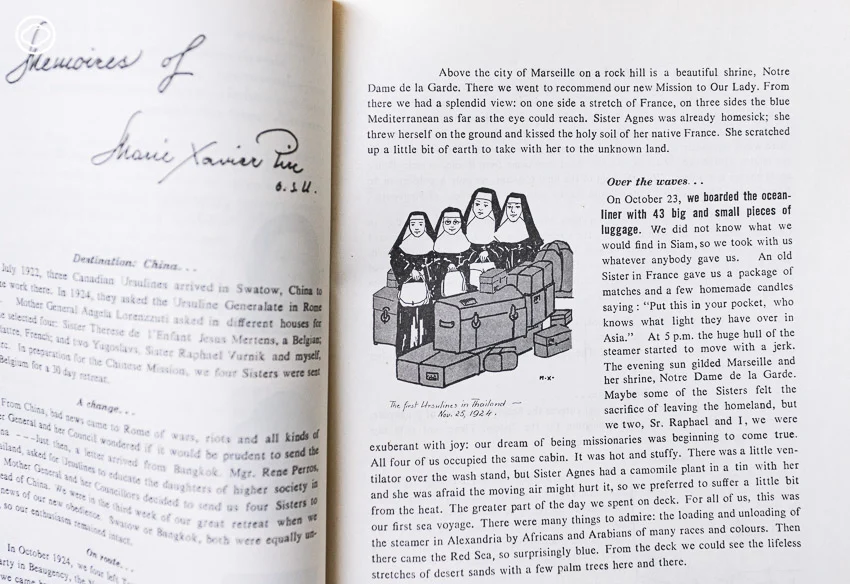 Memoires of
Marie Xavier Pirc
O.S.U.
Destination: China...
July 1922, three Canadian Ursulines arrived in Swatow, China to
work there. In 1924, they asked the Ursuline Generalate in Rome
Mother General Angela Lorenzutti asked in different houses for
selected four: Sister Therese de l'Enfant Jesus Mertens, a Belgian;
French; and two Yugoslavs, Sister Raphael Vurnik and myself,
In preparation for the Chinese Mission, we four Sisters were sent
Belgium for a 30 day retreat.
A change...
From China, bad news came to Rome of wars, riots and all kinds of
General and her Council wondered if it would be prudent to send the
Just then, a letter arrived from Bangkok. Mgr. Rene Perros,
asked for Ursulines to educate the daughters of higher society in
Mother General and her Councillors decided to send us four Sisters to
of China. We were in the third week of our great retreat when we
news of our new obedience. Swatow or Bangkok, both were equally un-
so our enthusiasm remained intact.
On route...
In October 1924, we four left
in Beaugency, the
we came
Above the city of Marseille on a rock hill is a beautiful shrine, Notre
Dame de la Garde. There we went to recommend our new Mission to Our Lady. From
there we had a splendid view: on one side a stretch of France, on three sides the blue
Mediterranean as far as the eye could reach. Sister Agnes was already homesick; she
threw herself on the ground and kissed the holy soil of her native France. She scratched
up a little bit of earth to take with her to the unknown land.
Over the waves...
On October 23, we boarded the ocean-
liner with 43 big and small pieces of
luggage. We did not know what we
would find in Siam, so we took with us
whatever anybody gave us. An old
Sister in France gave us a package of
matches and a few homemade candles
saying : "Put this in your pocket, who
knows what light they have over in
Asia." At 5 p.m. the huge hull of the
steamer started to move with a jerk.
The evening sun gilded Marseille and
her shrine, Notre Dame de la Garde.
Maybe some of the Sisters felt the
sacrifice of leaving the homeland, but
we two, Sr. Raphael and I, we were
M.X.
The first Ursulines in Thailand —
Nov. 25, 1924.
exuberant with joy: our dream of being missionaries was beginning to come true.
All four of us occupied the same cabin. It was hot and stuffy. There was a little ven-
tilator over the wash stand, but Sister Agnes had a camomile plant in a tin with her
and she was afraid the moving air might hurt it, so we preferred to suffer a little bit
from the heat. The greater part of the day we spent on deck. For all of us, this was
our first sea voyage. There were many things to admire: the loading and unloading of
the steamer in Alexandria by Africans and Arabians of many races and colours. Then
there came the Red Sea, so surprisingly blue. From the deck we could see the lifeless
stretches of desert sands with a few palm trees here and there.